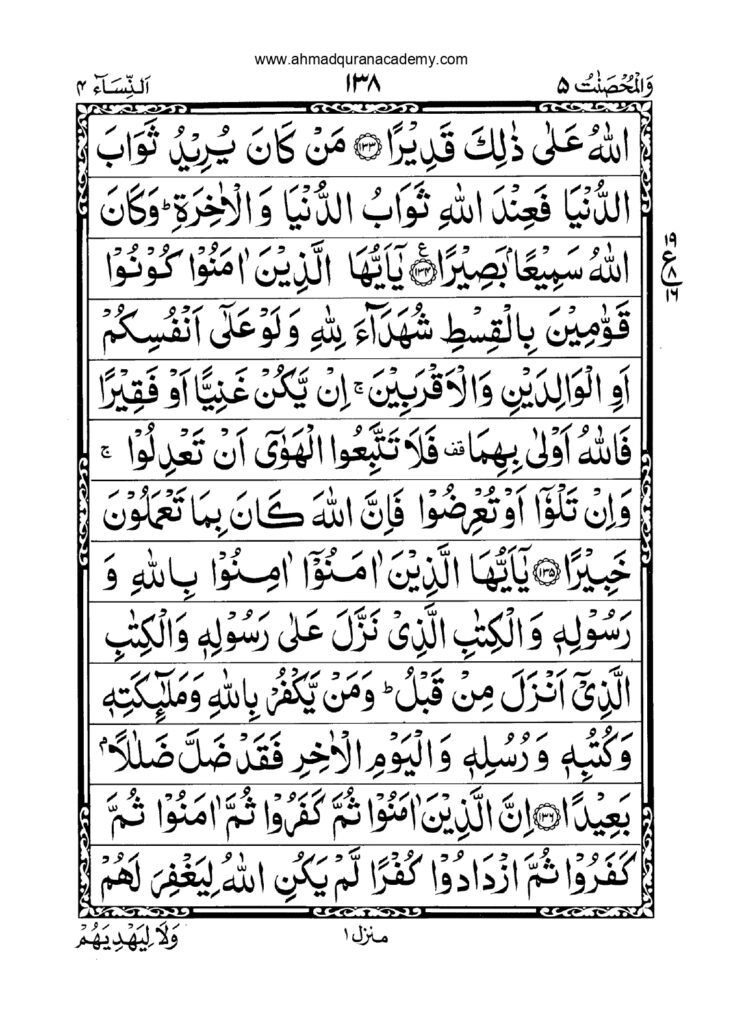 www.ahmadquranacademy.com
وَالْمُحْصَنٰتُ ۵
۱۳۸
اَلنِّسَآء ۴
اللّٰهُ عَلٰى ذٰلِكَ قَدِيْرًا ۱۳۳ مَنْ كَانَ يُرِيْدُ ثَوَابَ
الدُّنْيَا فَعِنْدَ اللّٰهِ ثَوَابُ الدُّنْيَا وَ الْاٰخِرَةِ ؕ وَ كَانَ
اللّٰهُ سَمِيْعًۢا بَصِيْرًا ۱۳۴ ع يٰۤاَيُّهَا الَّذِيْنَ اٰمَنُوْا كُوْنُوْا
۱۹
ع
۸
۱۶
قَوّٰمِيْنَ بِالْقِسْطِ شُهَدَآءَ لِلّٰهِ وَ لَوْ عَلٰۤى اَنْفُسِكُمْ
اَوِ الْوَالِدَيْنِ وَ الْاَقْرَبِيْنَ ۚ اِنْ يَّكُنْ غَنِيًّا اَوْ فَقِيْرًا
فَاللّٰهُ اَوْلٰى بِهِمَا قف فَلَا تَتَّبِعُوا الْهَوٰۤى اَنْ تَعْدِلُوْا ۚ
وَ اِنْ تَلْوٗۤا اَوْ تُعْرِضُوْا فَاِنَّ اللّٰهَ كَانَ بِمَا تَعْمَلُوْنَ
خَبِيْرًا ۱۳۵ يٰۤاَيُّهَا الَّذِيْنَ اٰمَنُوْۤا اٰمِنُوْا بِاللّٰهِ وَ
رَسُوْلِهٖ وَ الْكِتٰبِ الَّذِيْ نَزَّلَ عَلٰى رَسُوْلِهٖ وَ الْكِتٰبِ
الَّذِيْۤ اَنْزَلَ مِنْ قَبْلُ ؕ وَ مَنْ يَّكْفُرْ بِاللّٰهِ وَ مَلٰٓئِكَتِهٖ
وَ كُتُبِهٖ وَ رُسُلِهٖ وَ الْيَوْمِ الْاٰخِرِ فَقَدْ ضَلَّ ضَلٰلًاۢ
بَعِيْدًا ۱۳۶ اِنَّ الَّذِيْنَ اٰمَنُوْا ثُمَّ كَفَرُوْا ثُمَّ اٰمَنُوْا ثُمَّ
كَفَرُوْا ثُمَّ ازْدَادُوْا كُفْرًا لَّمْ يَكُنِ اللّٰهُ لِيَغْفِرَ لَهُمْ
منزل ۱
وَلَا لِيَهْدِيَهُمْ